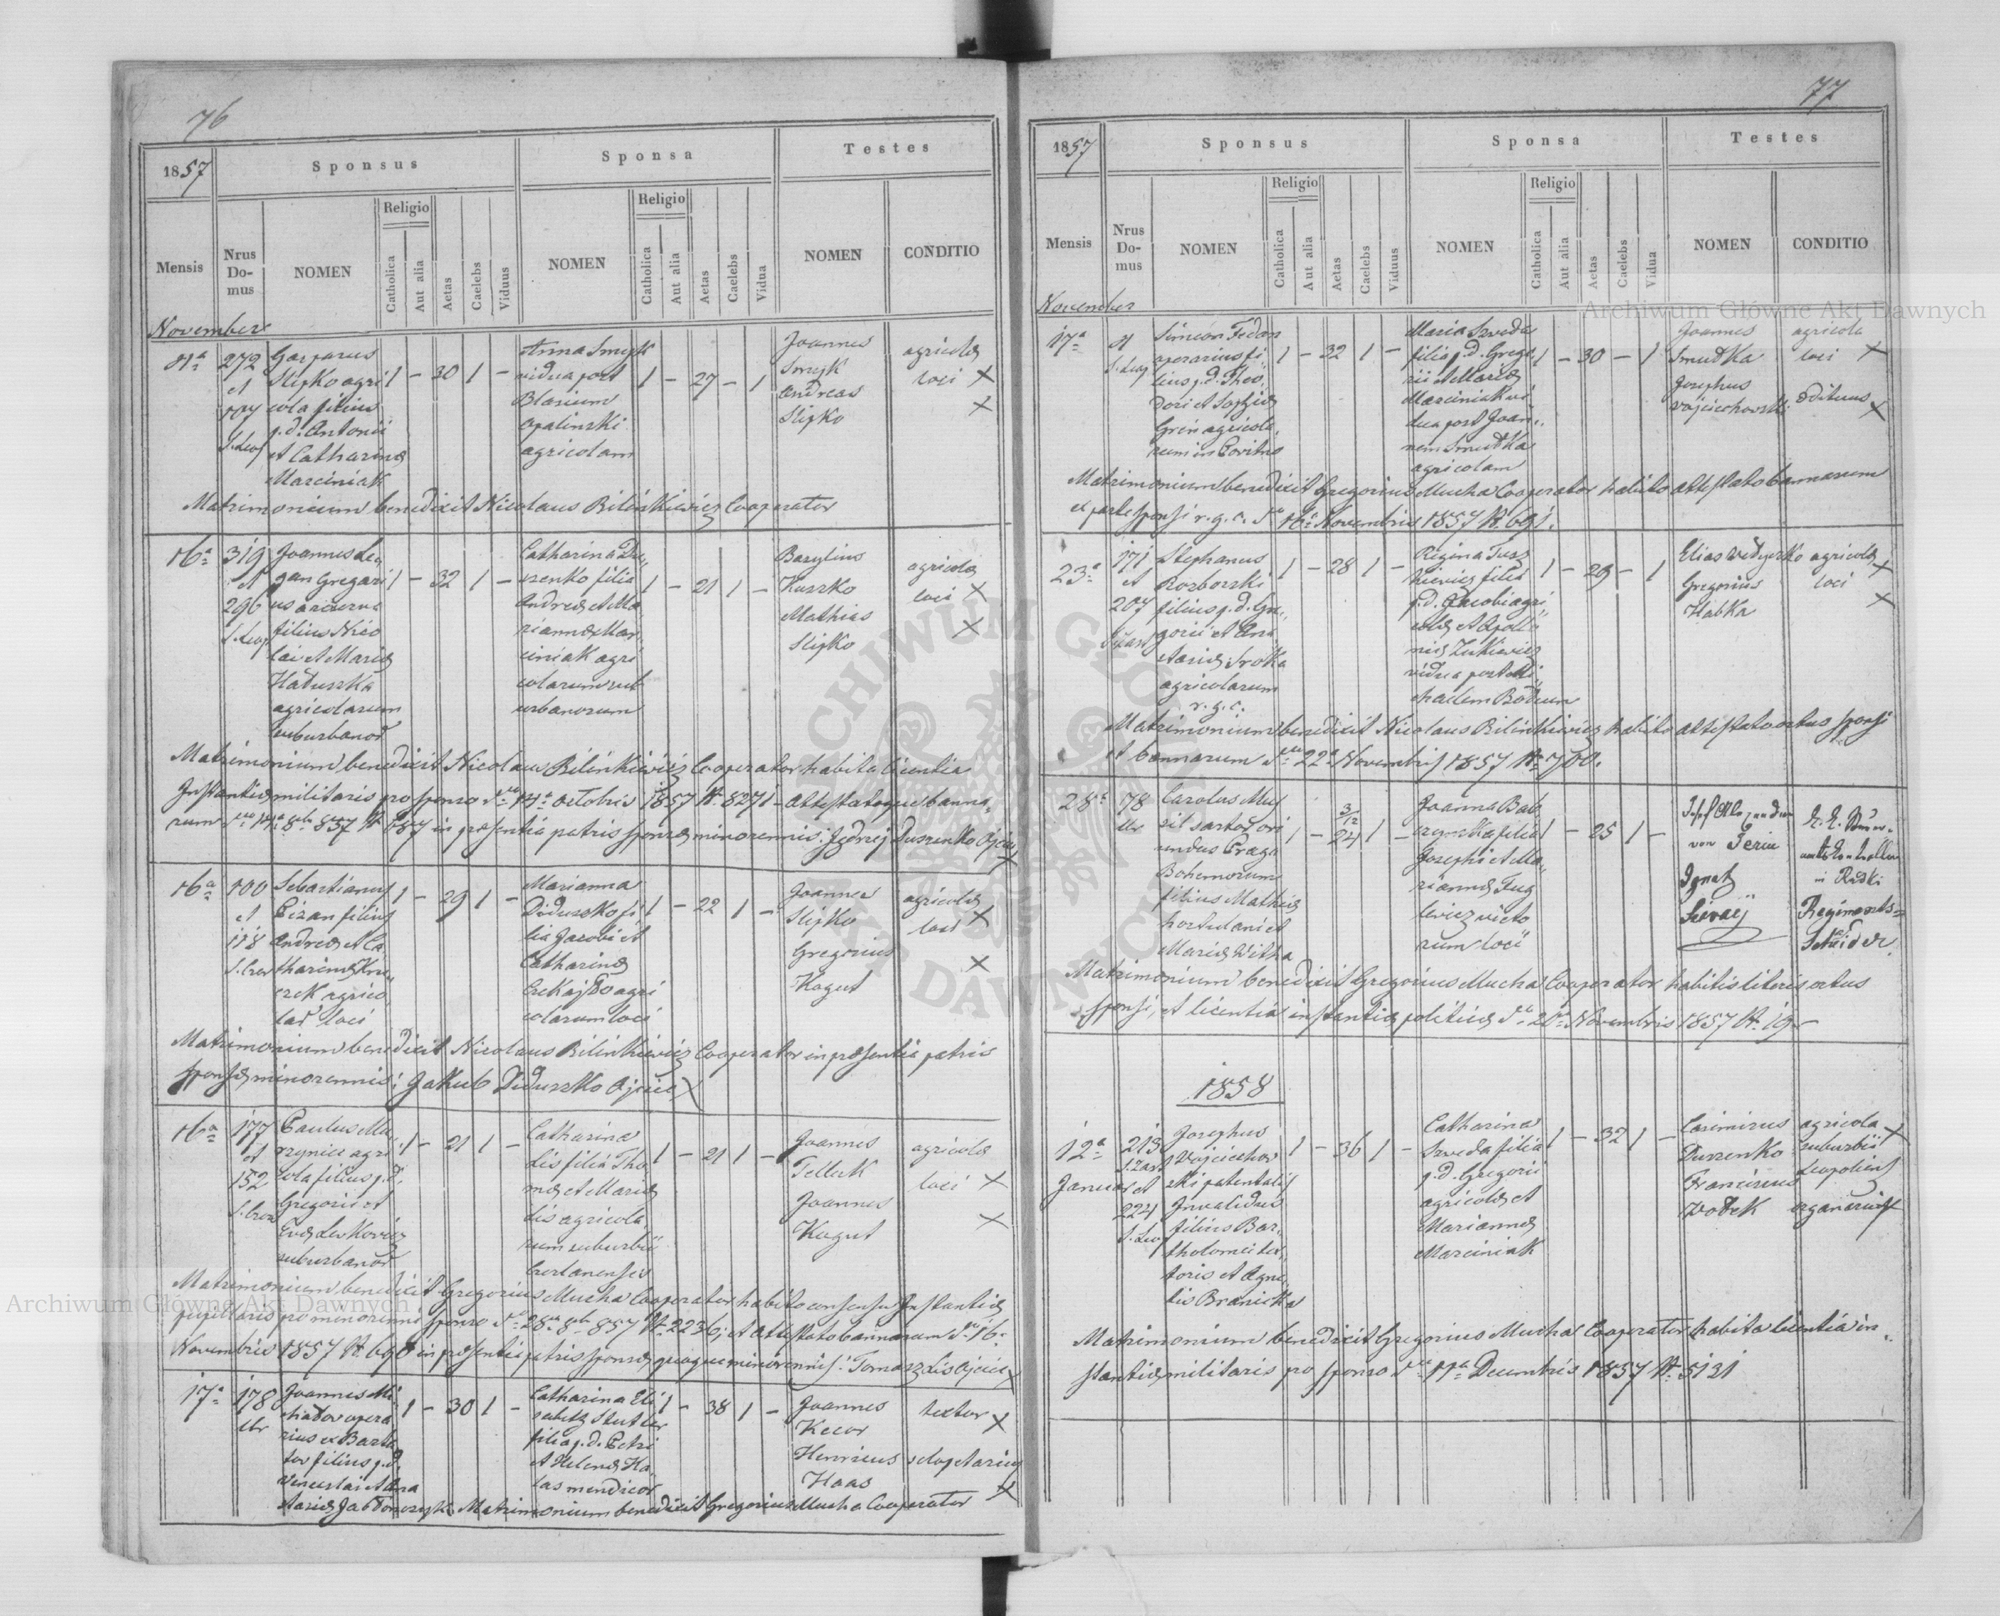 76
1857
Sponsus
Sponsa
Testes
Mensis
Nrus Domus
NOMEN
Religio
Catholica
Aut alia
Aetas
Caelebs
Viduus
NOMEN
Religio
Catholica
Aut alia
Aetas
Caelebs
Vidua
NOMEN
CONDITIO
November
11a
272
et
107
Gasparus
Slipko agri
cola filius
p. d. Antonii
et Catharinae
Marciniak
1 – 30 1 –
Anna Smyk
vidua post
Blasium
Opalinski
agricolam
1 – 27 – 1
Joannes
Smyk
Andreas
Slipko
agricolae
loci X
X
Matrimonium benedixit Nicolaus Bilinkiewicz Cooperator
16a
319
et
296
Joannes
Gregori
filius Nico
lai et Mariae
Haduszka
agricolarum
suburbanor
1 – 32 1 –
Catharina Du
szenko filia
Andreae et Ma
riannae Mar
ciniak agri
colarum sub
urbanorum
1 – 21 1 –
Basylius
Kuszko
Mathias
Slipko
agricolae
loci X
X
Matrimonium benedixit Nicolaus Bilinkiewicz Cooperator habita licentia
Instantiae militaris pro sponso dto 14a Octobris 1857 N 8271 – attestatoque banno
rum in praesentia patris sponsae minorennis: Jędrzej Duszenko Ojciec
X
16a
100
et
118
Sebastianus
Pizan filius
Andreae et Ca
tharinae
agrico
lar loci
1 – 29 1 –
Marianna
Diduszko fi
lia Jacobi et
Catharinae
agri
colarum loci
1 – 22 1 –
Joannes
Slipko
Gregorius
Kogut
agricolae
loci X
X
Matrimonium benedixit Nicolaus Bilinkiewicz Cooperator in praesentia patris
sponsae minorennis: Jakub Diduszko Ojciec X
16a
177
et
152
Paulus
agri
cola filius p. d.
Gregorii et
Evae Levkowicz
suburbanor
1 – 21 1 –
Catharina
Lis filia Tho
mae et Mariae
Lis agricola
rum suburbii
1 – 21 1 –
Joannes
Telluk
Joannes
Kogut
agricolae
loci X
X
Matrimonium benedixit Gregorius Mucha Cooperator habito consensu Instantiae
pupillaris pro minorenni sponso dto 28a 8bris 857 N 2236, et attestato bannorum dto 16a
Novembris 1857 N 690 in praesentia patris sponsae quoque minorennis: Tomasz Lis Ojciec X
17a
178
Ur
Joannes
opera
rius ex
filius p. d.
Venceslai et Ana
stasiae
1 – 30 1 –
Catharina Eli
sabeth Stutler
filia p. d. Petri
et Helenae Ha
las mendicor
1 – 38 1 –
Joannes
Kecor
Henricus
Haas
textor
X
X
Matrimonium benedixit Gregorius Mucha Cooperator
77
1857
Sponsus
Sponsa
Testes
Mensis
Nrus Domus
NOMEN
Religio
Catholica
Aut alia
Aetas
Caelebs
Viduus
NOMEN
Religio
Catholica
Aut alia
Aetas
Caelebs
Vidua
NOMEN
CONDITIO
November
17a
Simeon Fedan
operarius fi
lius p. d. Theo
dori et Sophiae
Gren agricola
rum
1 – 32 1 –
Maria Szweda
filia p. d. Grego
rii et Mariae
Marciniak vi
dua post Joan
nem Smutka
agricolam
1 – 30 – 1
Joannes
Smutka
Josephus
Wojciechowski
agricola
loci X
edituus X
Matrimonium benedixit Gregorius Mucha Cooperator habito attestato bannorum
ex parte sponsi r. g. c. dto 16a Novembris 1857 N 691.
23a
171
et
207
Stephanus
Rozborski
filius p. d. Gre
gorii et Ana
stasiae Sroka
agricolarum
r. g. c.
1 – 28 1 –
Regina Tusz
kiewicz filia
p. d. Jacobi agri
colae et Apollo
niae
vidua post Mi
chaelem Bodrum
1 – 29 – 1
Elias
Gregorius
Habka
agricolae X
loci
X
Matrimonium benedixit Nicolaus Bilinkiewicz habito attestato ortus sponsi
et bannorum dto 22a Novembris 1857 N 700.
28a
78
Ur
Carolus
sartor ori
undus Praga
Bohemorum
filius Mathiae
hortulani et
Mariae Witka
1 – 24 3/12 1 –
Joanna Bab
czynska filia
Josephi et Ma
riannae
victo
rum loci
1 – 25 1 –
Josef Alexander
von
Ignatz
in
Regiments-
Schneider
Matrimonium benedixit Gregorius Mucha Cooperator habitis literis ortus
sponsi, et licentia instantiae politicae dto Novembris 1857 N 19 –
1858
12a
Januar
213
et
224
Josephus
Wojciechow
ski patentalis
Invalidus
filius Bar
tholomei
toris et Agne
tis Branicka
1 – 36 1 –
Catharina
Szweda filia
p. d. Gregorii
agricolae et
Mariannae
Marciniak
1 – 32 1 –
Casimirus
Duszenko
Franciscus
Wotek
agricola X
suburbii
Leopoliens
organarius X
Matrimonium benedixit Gregorius Mucha Cooperator habita licentia in
stantiae militaris pro sponso dto 11a Decembris 1857 N 5121
Archiwum Główne Akt Dawnych
Archiwum Główne Akt Dawnych
ARCHIWUM GŁÓWNE AKT DAWNYCH